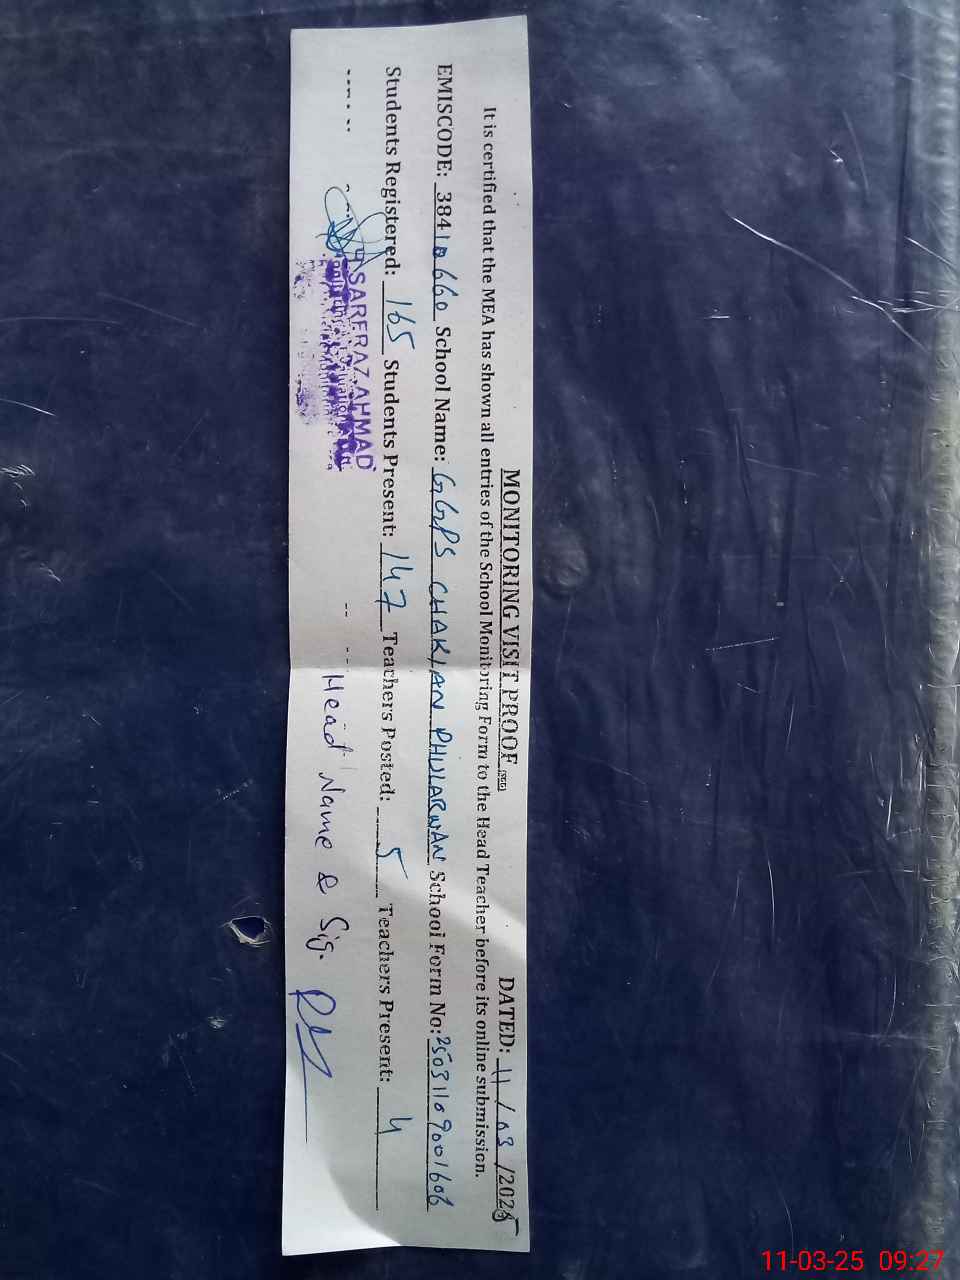 MONITORING VISIT PROOF
DATED: 11/03/2025
It is certified that the MEA has shown all entries of the School Monitoring Form to the Head Teacher before its online submission.
EMISCODE: 38410660 School Name: GGPS CHAKIAN PHULARWAN School Form No: 25031109001606
Students Registered: 165 Students Present: 147 Teachers Posted: 5 Teachers Present: 4
SARFRAZ AHMAD
Head Name & Sig.
11-03-25 09:27